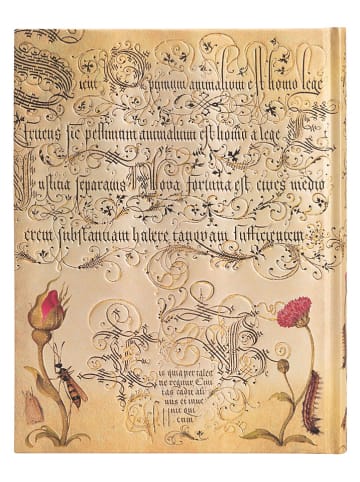 Sicut Optimum animalium est homo lege
fruens sic pessimum animalium est homo a lege et
Iustitia separatus Nova fortuna est cives medio
crem substantiam habere tanquam sufficientem
is quia per tales
ne regitur Ciui
tas cadit ali
nus ei inue
nit qui
cum